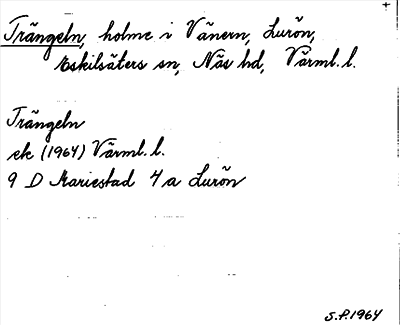 Trängeln, holme i Vänern, Lurön,
Eskilsäters sn, Näs hd, Värml. l.
Trängeln
ek (1964) Värml. l.
9 D Mariestad 4 a Lurön
S.P. 1964